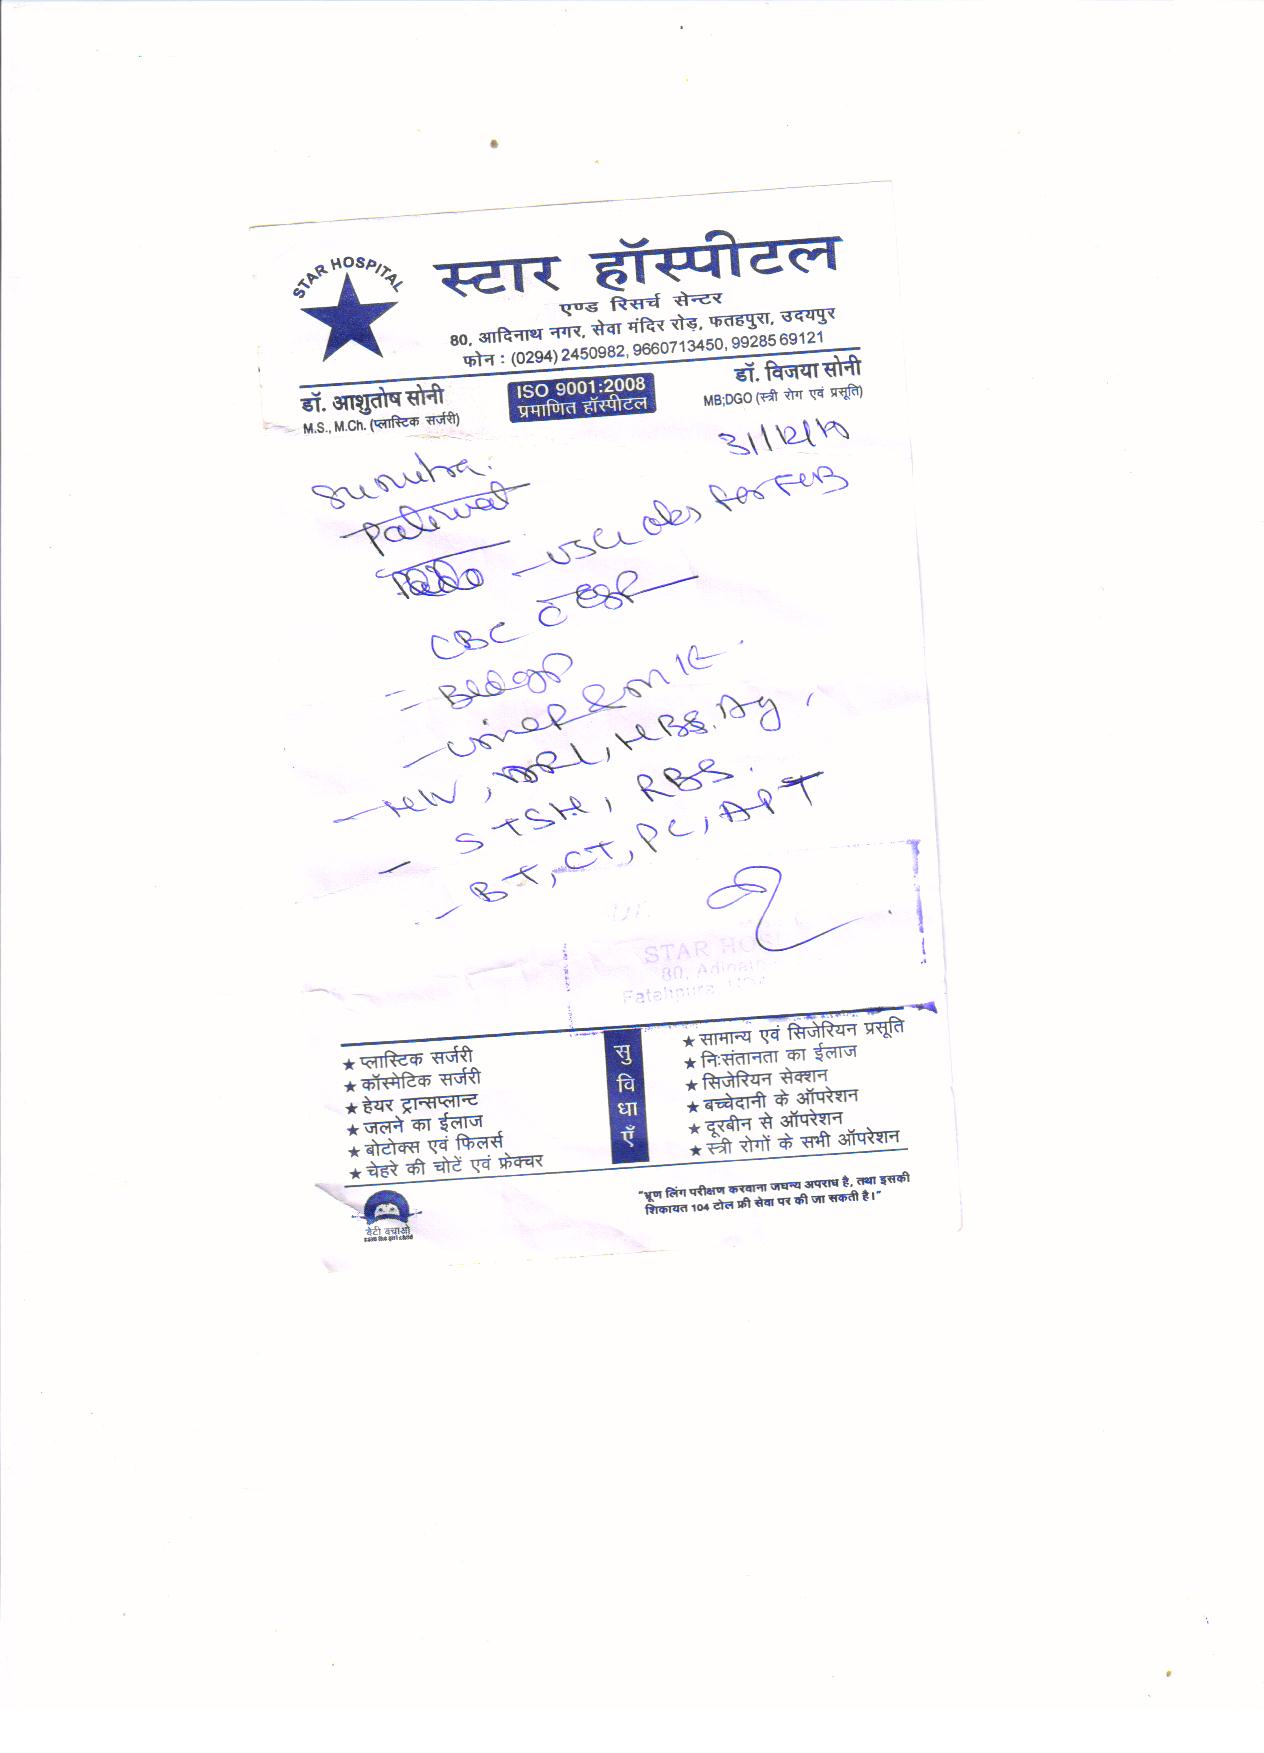 STAR HOSPITAL
स्टार हॉस्पीटल
एण्ड रिसर्च सेन्टर
80, आदिनाथ नगर, सेवा मंदिर रोड़, फतहपुरा, उदयपुर
फोन : (0294) 2450982, 9660713450, 99285 69121
डॉ. आशुतोष सोनी
M.S., M.Ch. (प्लास्टिक सर्जरी)
ISO 9001:2008
प्रमाणित हॉस्पीटल
डॉ. विजया सोनी
MB;DGO (स्त्री रोग एवं प्रसूति)
31/12/
Paliwal
for FWB
CBC c ESR
- Bld gp
- Urine R & M/E.
- HIV, , HBsAg,
- STSH, RBS.
- BT, CT, PC, APT
STAR HO
80, Adinat
Fatehpura,
सुविधाएँ
★ प्लास्टिक सर्जरी
★ कॉस्मेटिक सर्जरी
★ हेयर ट्रान्सप्लान्ट
★ जलने का ईलाज
★ बोटोक्स एवं फिलर्स
★ चेहरे की चोटें एवं फ्रेक्चर
★ सामान्य एवं सिजेरियन प्रसूति
★ निःसंतानता का ईलाज
★ सिजेरियन सेक्शन
★ बच्चेदानी के ऑपरेशन
★ दूरबीन से ऑपरेशन
★ स्त्री रोगों के सभी ऑपरेशन
बेटी बचाओ
save the girl child
"भ्रूण लिंग परीक्षण करवाना जघन्य अपराध है, तथा इसकी
शिकायत 104 टोल फ्री सेवा पर की जा सकती है।"